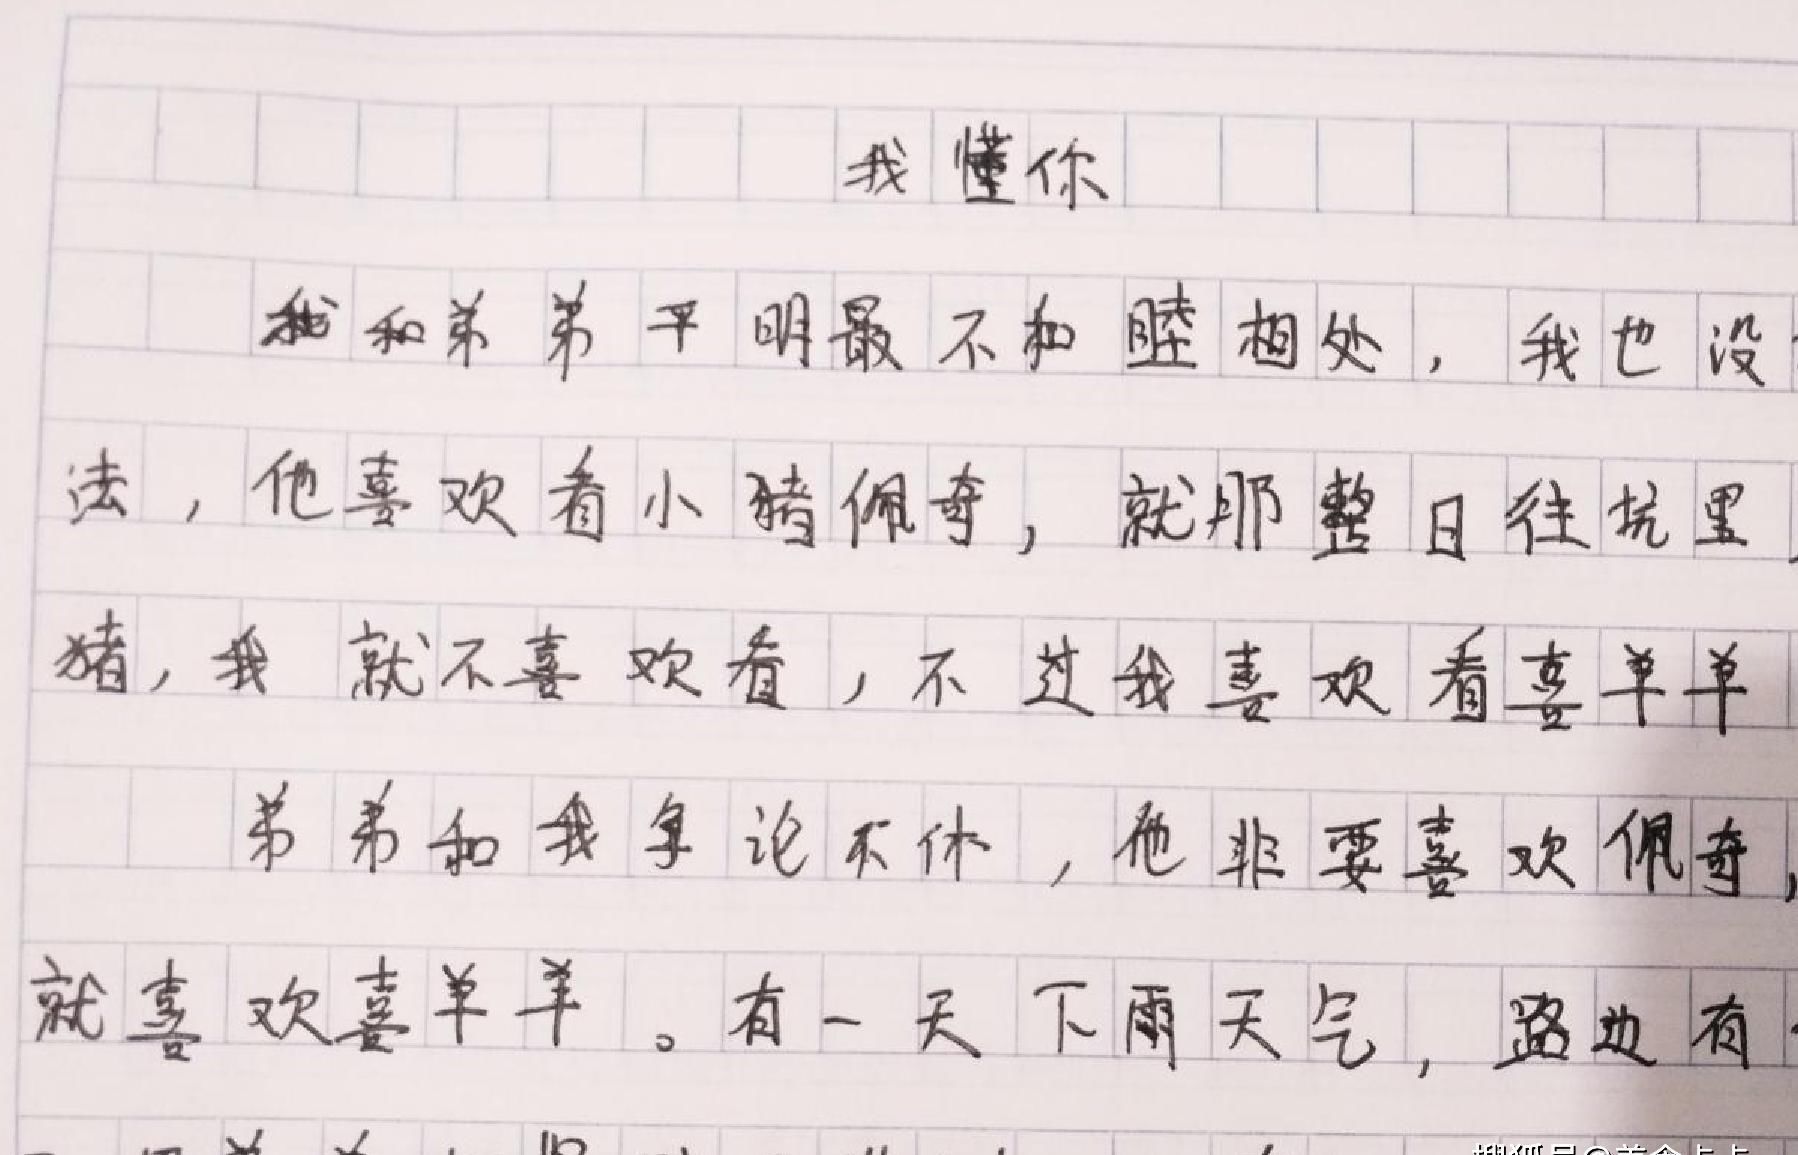 我懂你
我和弟弟平明最不和睦相处，我也没
法，他喜欢看小猪佩奇，就那整日往坑里
猪，我就不喜欢看，不过我喜欢看喜羊羊
弟弟和我争论不休，他非要喜欢佩奇，
就喜欢喜羊羊。有一天下雨天气，路边有